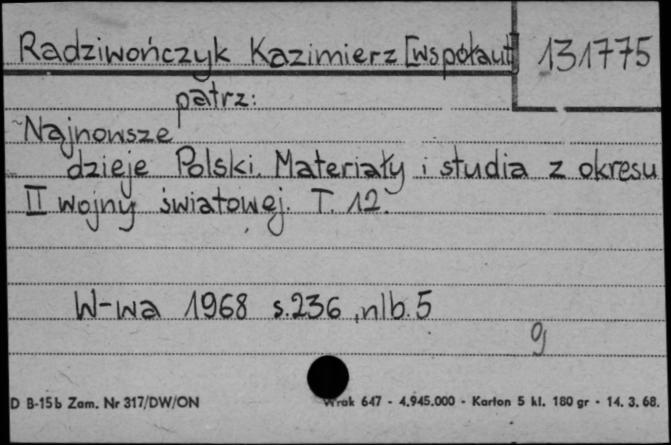 Radziwończyk Kazimierz [współaut] 131775
patrz:
Najnowsze
dzieje Polski. Materiały i studia z okresu
II wojny światowej. T. 12.
W-wa 1968 s. 236, nlb. 5
D B-15b Zam. Nr 317/DW/ON Wrak 647 - 4.945.000 - Karton 5 kl. 180 gr - 14. 3. 68.